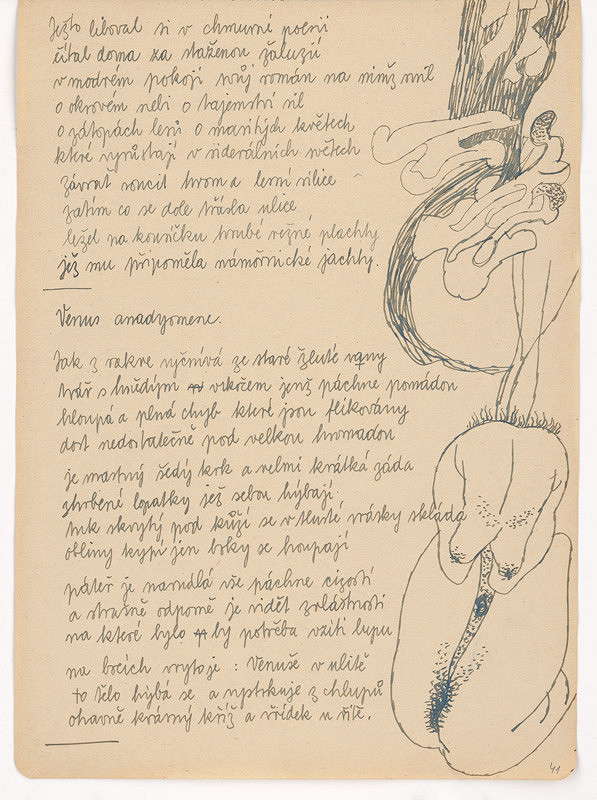 Ježto liboval si v chmurné poesii
čítal doma za staženou žaluzií
v modrém pokoji svůj román na nímž snil
o okrovém nebi o tajemství sil
o zátopách lesů o masitých květech
které vyrůstají v siderálních světech
závrať soucit hrom a lesní silice
zatím co se dole třásla ulice
ležel na kousíčku hrubé režné plachty
jež mu připomělа námořnické jachty.
Venus anadyomene.
Jak z rakve vyčnívá ze staré žluté vany
tvář s hnědým vrkočem jenž páchne pomádou
hloupá a plná chyb které jsou flikovány
dost nedostatečně pod velkou hromadou
je mastný šedý krk a velmi krátká záda
shrbené lopatky jež sebou hýbají
tuk skrytý pod kůží se v tlusté vrásky skládá
obliny kypí jen boky se houpají
páteř je narudlá vše páchne cizostí
a strašně odporně je vidět zvláštnosti
na které bylo by potřeba vzíti lupu
na bocích vryto je : Venuše v ulitě
to tělo hýbá se a vystrkuje z chlupů
ohavně krásný kříž a vřídek u řítě.
41